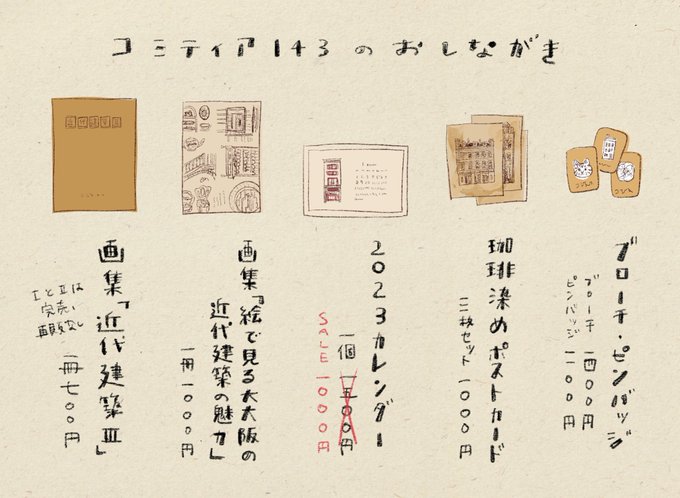 コミティア143のおしながき
ブローチ・ピンバッジ
ブローチ 一四〇〇円
ピンバッジ 一一〇〇円
珈琲染めポストカード
三枚セット 一〇〇〇円
2023カレンダー
一個 一五〇〇円
SALE 一〇〇〇円
画集『絵で見る大大阪の
近代建築の魅力』
一冊 一〇〇〇円
画集「近代建築Ⅲ」
一冊七〇〇円
ⅠとⅡは
完売い
再販なし